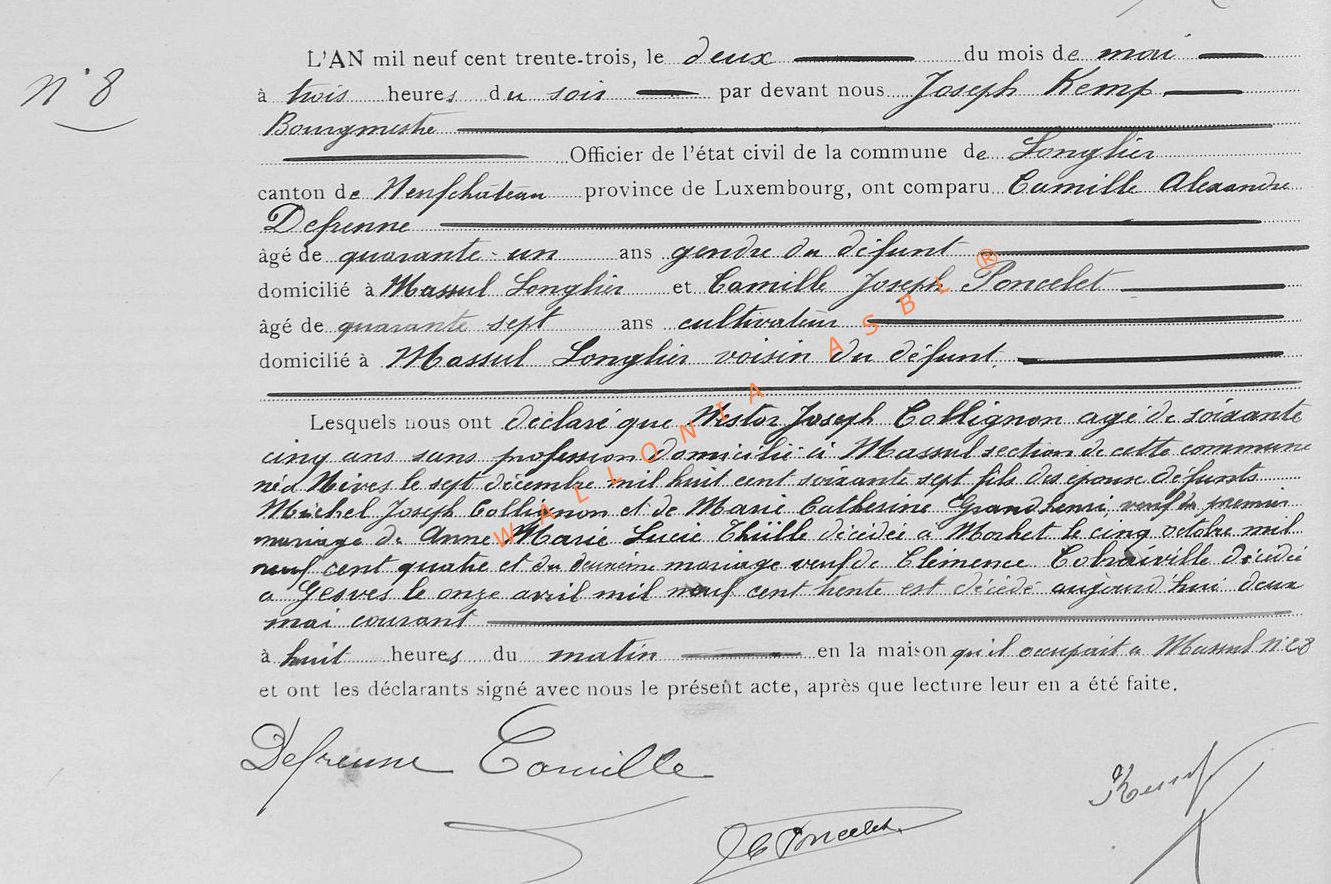 N° 8
L'AN mil neuf cent trente-trois, le deux du mois de mai
à trois heures du soir par devant nous Joseph Kemp
Bourgmestre
Officier de l'état civil de la commune de Longlier
canton de Neufchâteau province de Luxembourg, ont comparu Camille Alexandre
Defrenne
âgé de quarante-un ans gendre du défunt
domicilié à Massul Longlier et Camille Joseph Poncelet
âgé de quarante sept ans cultivateur
domicilié à Massul Longlier voisin du défunt.
Lesquels nous ont déclaré que Nestor Joseph Collignon agé de soixante
cinq ans sans profession domicilié à Massul section de cette commune
né à Nives le sept décembre mil huit cent soixante sept fils des époux défunts
Michel Joseph Collignon et de Marie Catherine Grandhenri veuf en premier
mariage de Anne Marie Lucie Thille décédée à Morhet le cinq octobre mil
neuf cent quatre et du deuxième mariage veuf de Clémence décédée
a Gesves le onze avril mil neuf cent trente est décédé aujourd'hui deux
mai courant
à huit heures du matin en la maison qu'il occupait a Massul N° 28
et ont les déclarants signé avec nous le présent acte, après que lecture leur en a été faite.
Defrenne Camille
JC Poncelet
Kemp
WALLONIA ASBL ®